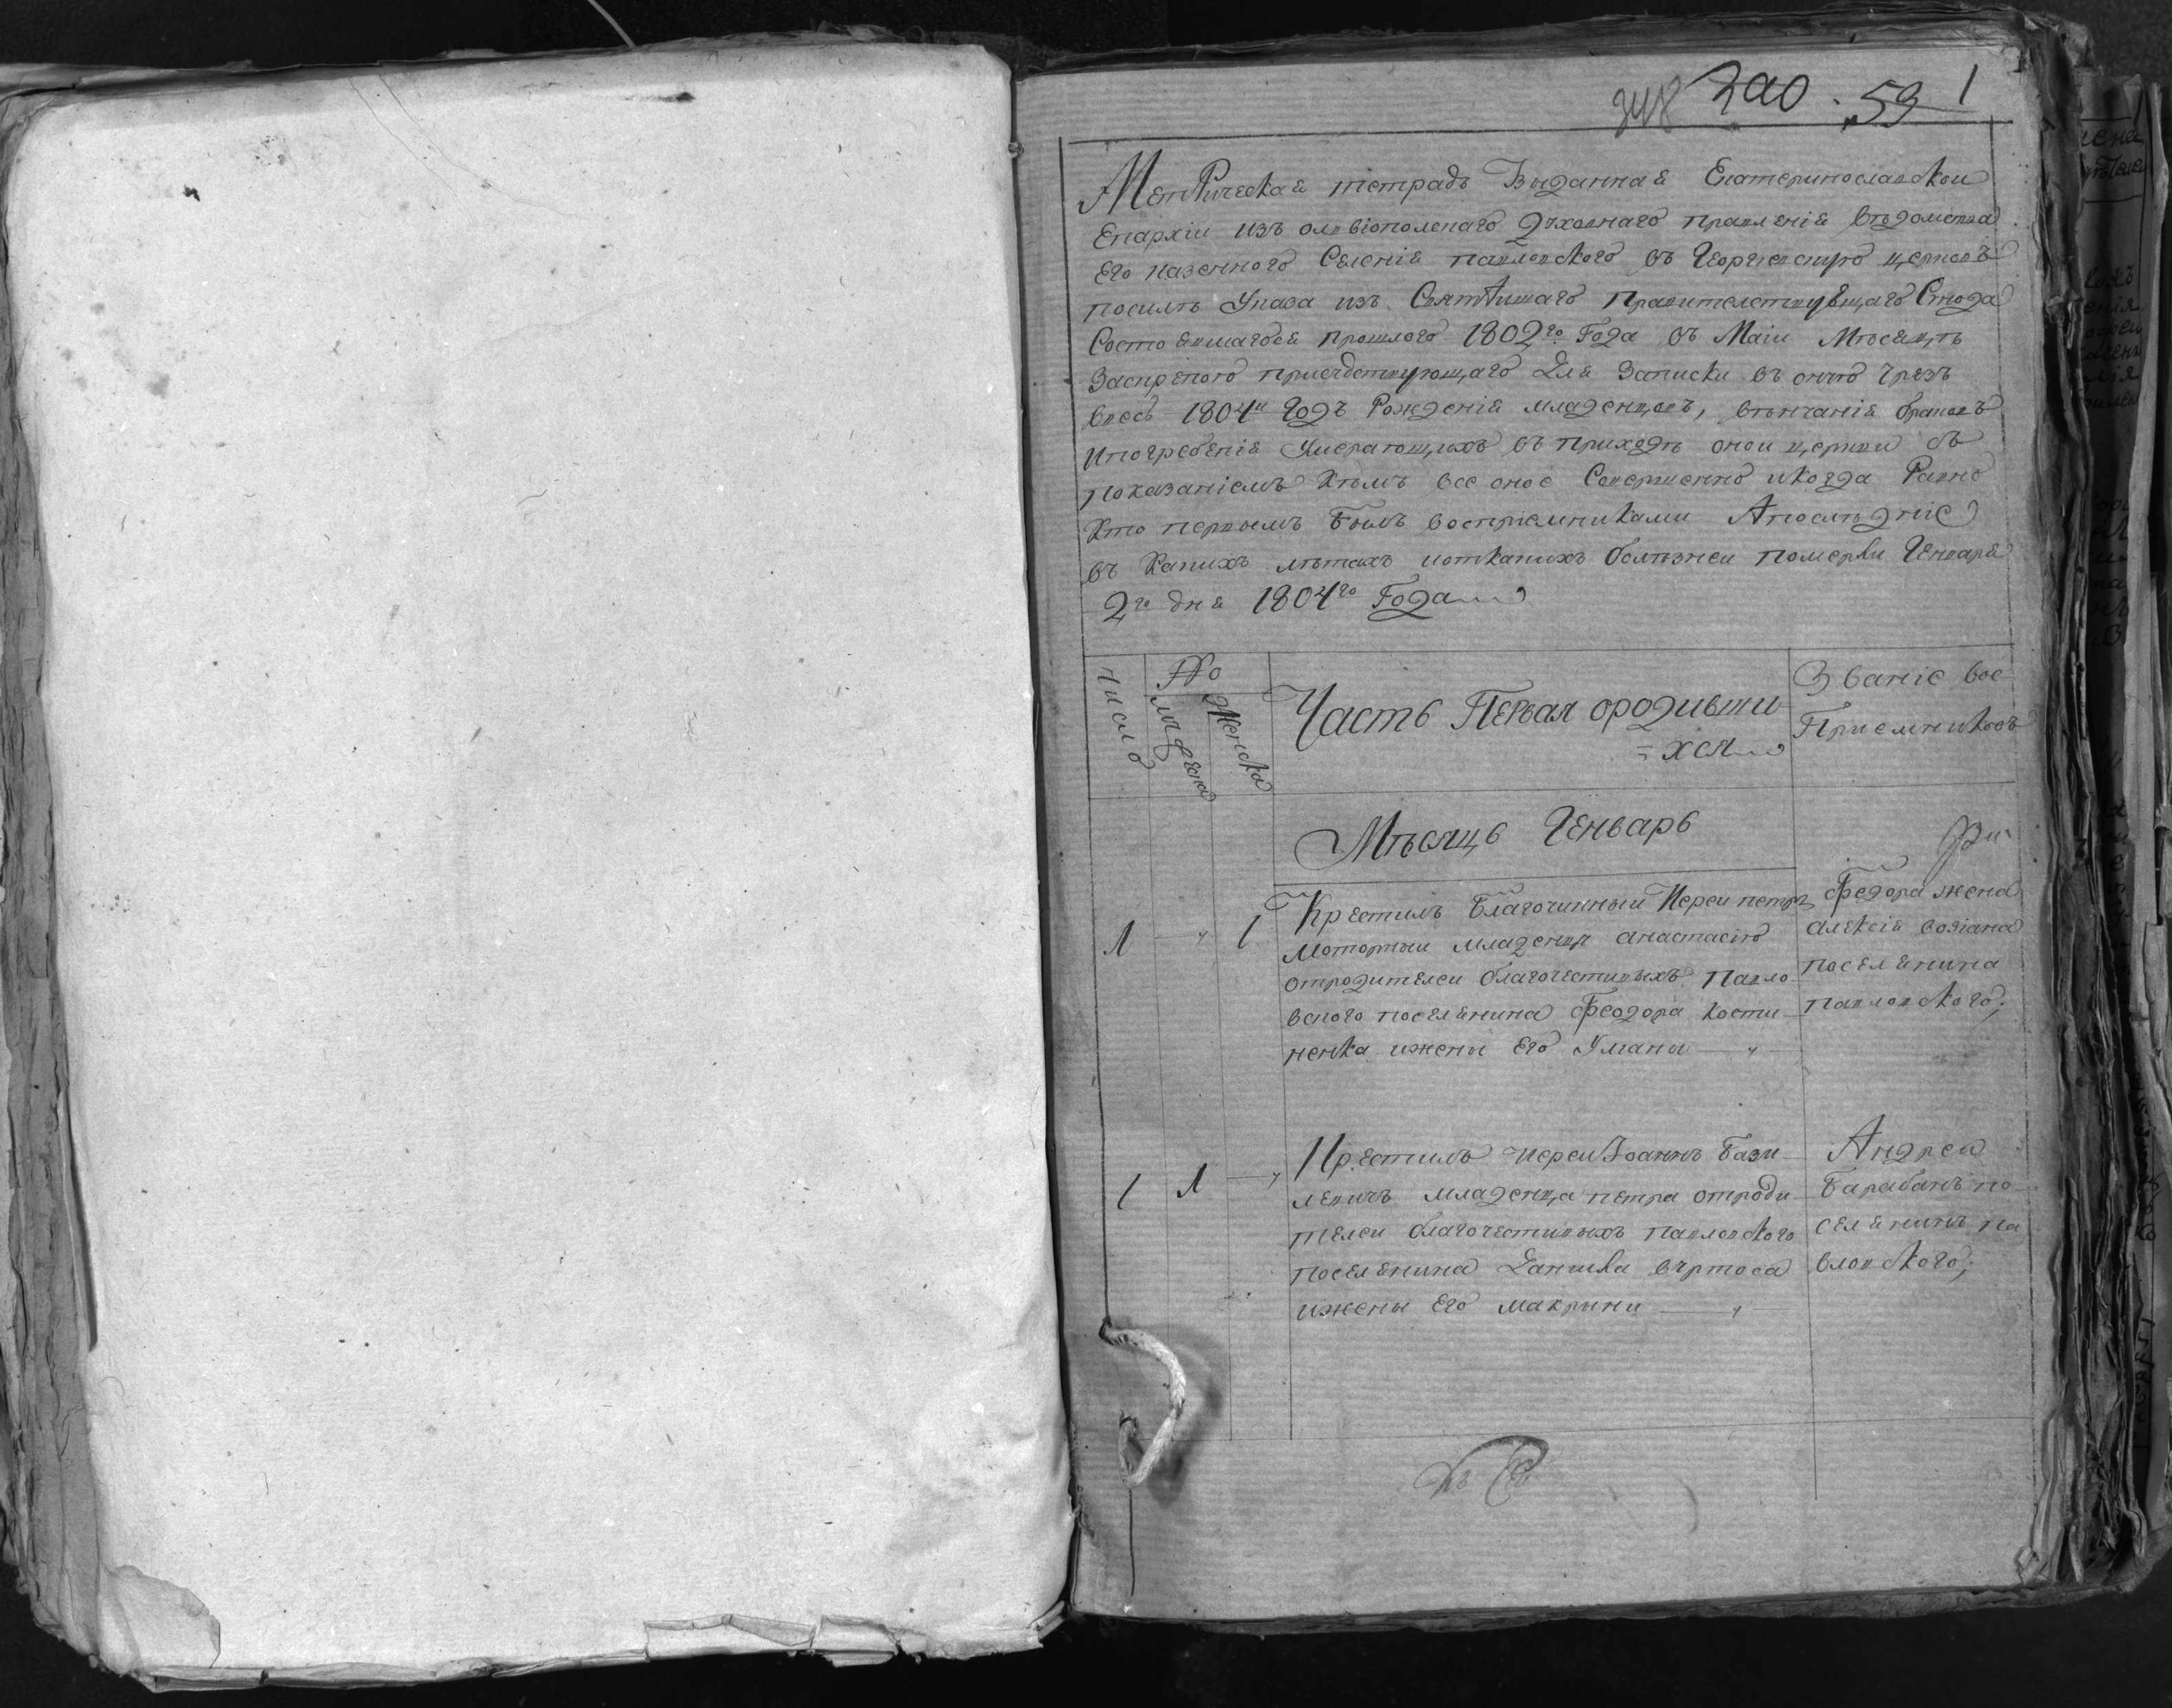 348 290. 59 1
Метрическая тетрадь Выданная Екатеринославской
Епархіи изъ олвіополскаго духовнаго правленія вѣдомства
Его казенного Селенія павловского въ Георгіевскую церковъ
посилѣ Указа изъ Святѣишаго Правителствующаго Сѵнода
Состоявшагося прошлого 1802го Года въ Маіи Мѣсяцѣ
Заскрепою присудствующаго Для Записки въ оную чрезъ
весь 1804й Годъ Рожденія младенцовъ, вѣнчанія браковъ
Ипогребенія Умерающихъ въ приходѣ онои церкви съ
показаніемъ Кѣмъ все оное Совершенно икогда Равно
Кто первымъ Былъ восприемниками Апослѣдніе
въ Какихъ лѣтахъ иоткакихъ болѣзнеи померли Генваря
2го дня 1804го Года
Число
No
мужеска
Женска
Часть Первая ородивши
=хся
Званіе вос
Приемниковъ
Мѣсяцъ Генварь
1 „ 1
Крестилъ Благочинный Иереи петръ
Моторный младенца анастасію
отродителеи благочестивыхъ Павло
вского поселянина Феодора Кости
ненка ижены Его Уляны „
Федора жена
алексія возіана
поселянина
павловского;
1 1 „
Крестилъ иереи Іоаннъ Бази
левичъ младенца петра отроди
телеи благочестивыхъ павловского
поселянина Данила вуртоса
ижены Его макрыни „
Андреи
Барабанъ по
селянинъ па
вловского;